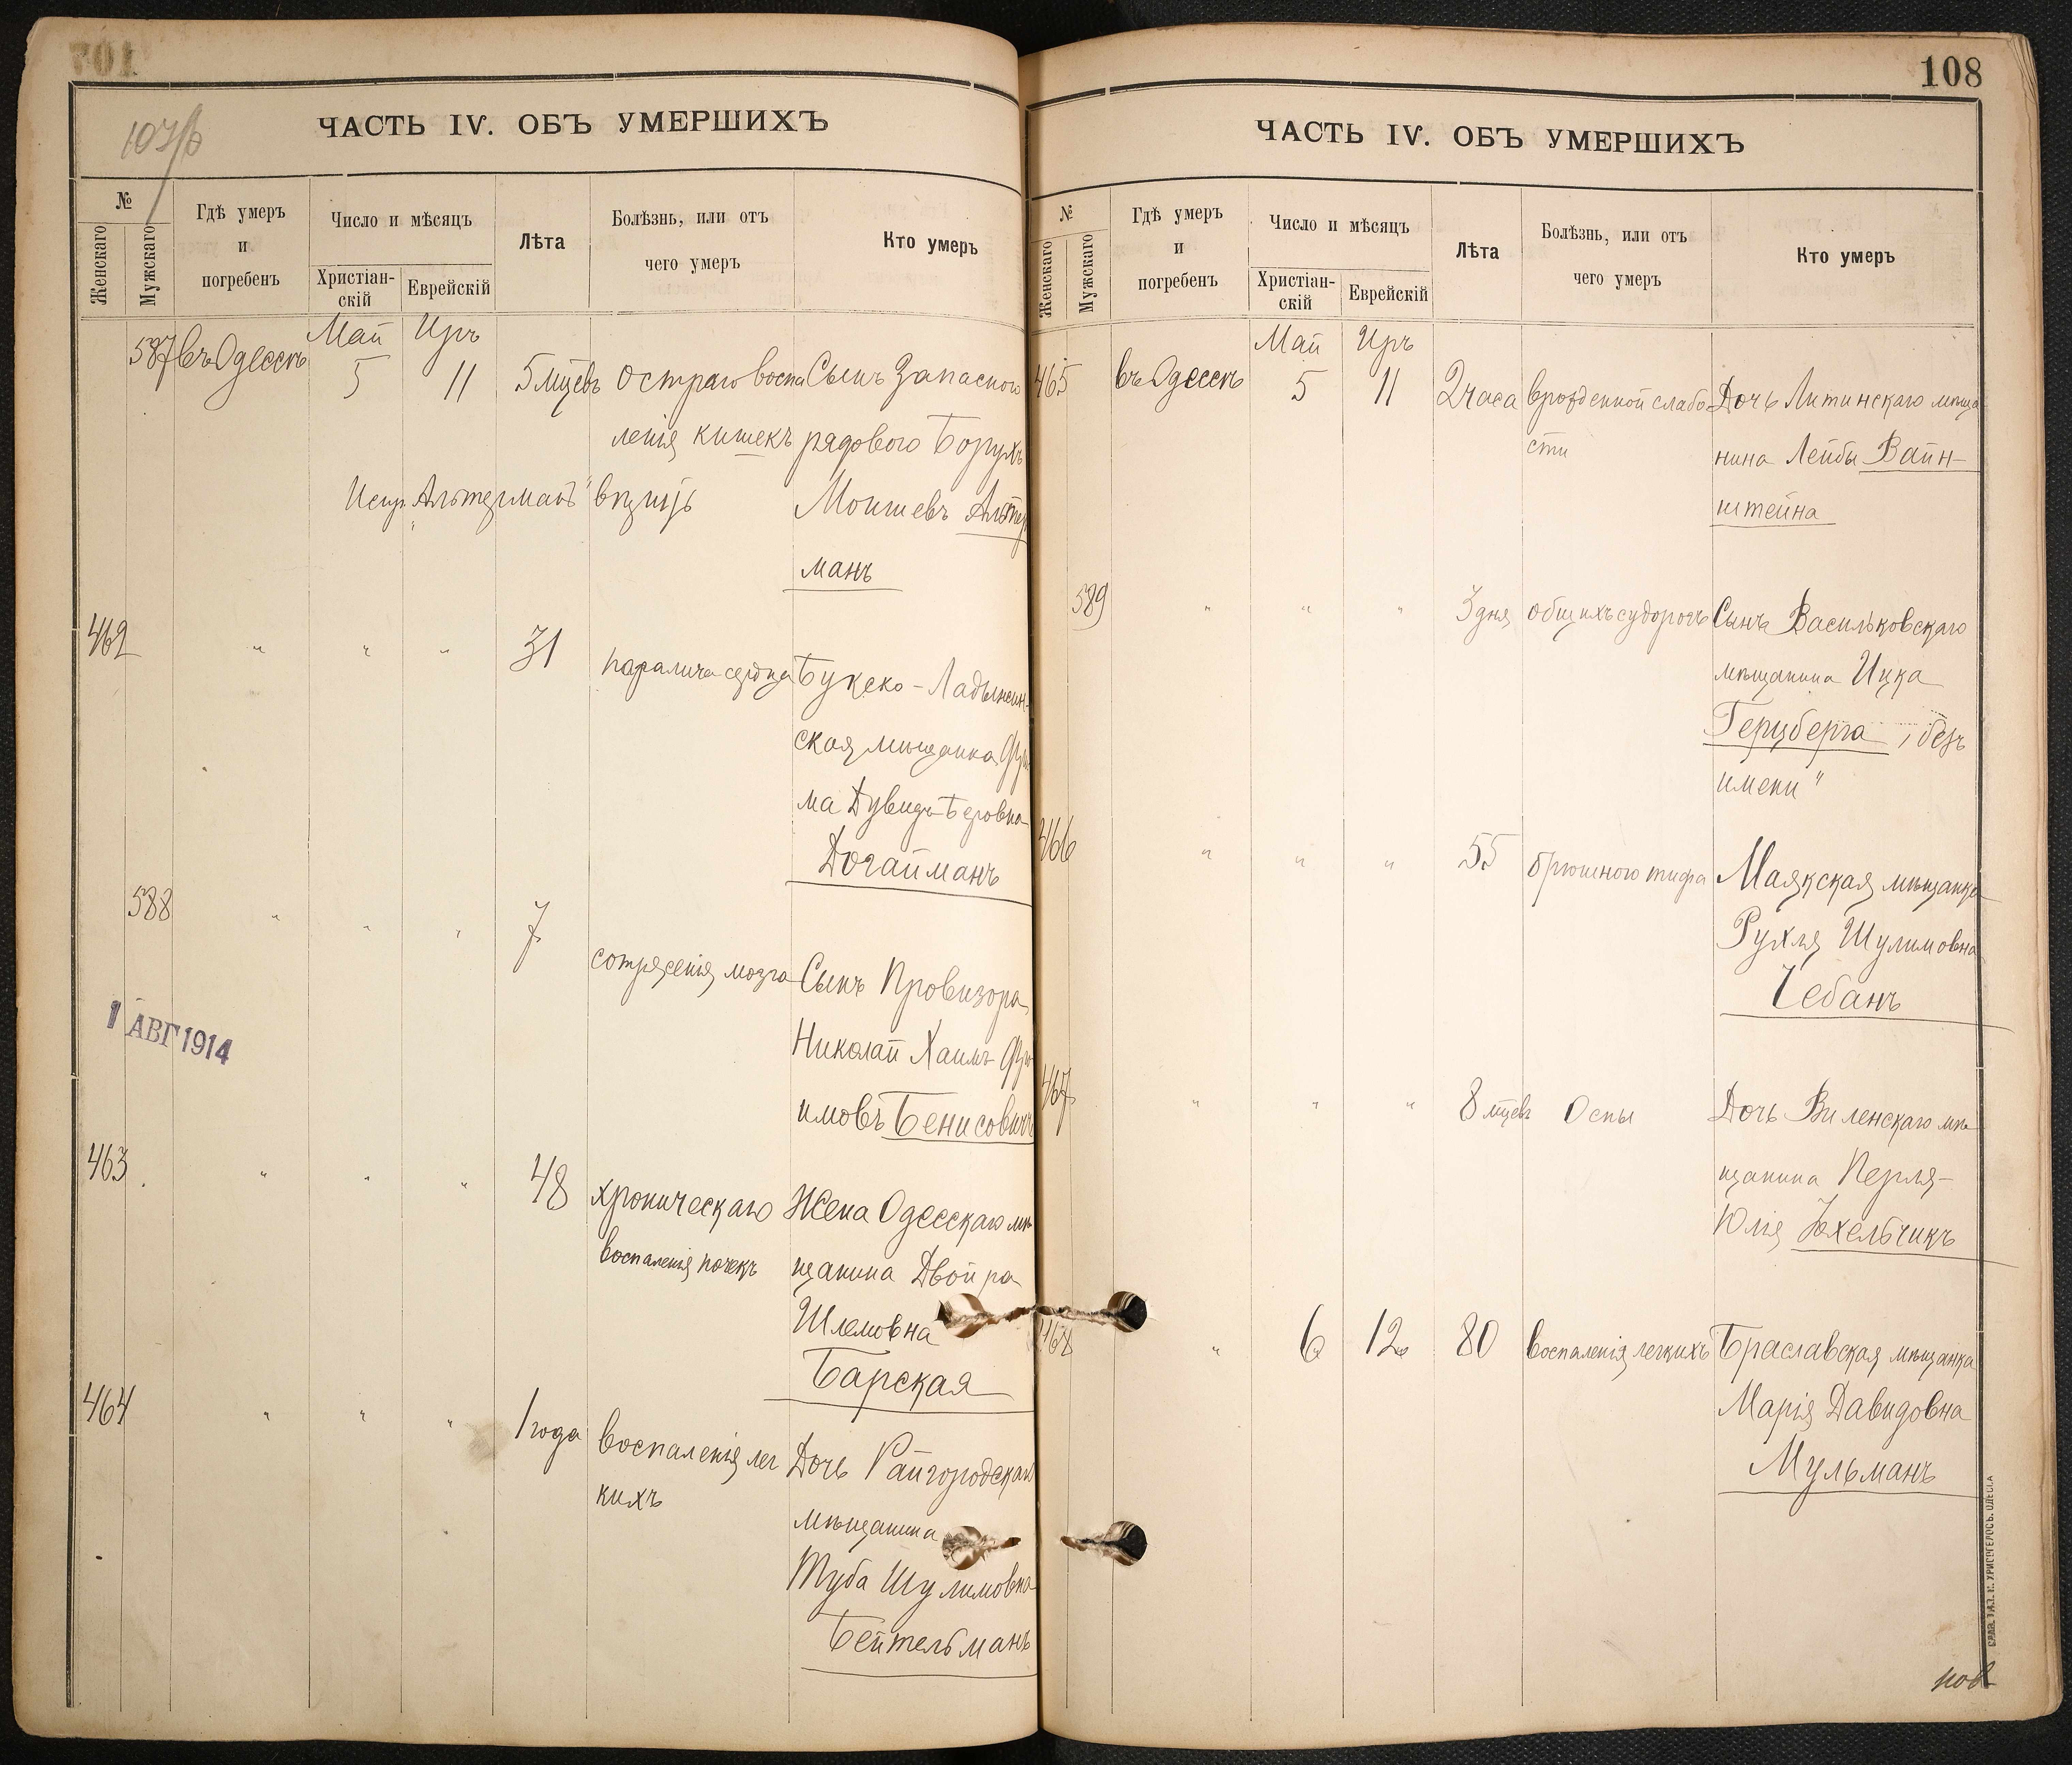 107/б
ЧАСТЬ IV. ОБЪ УМЕРШИХЪ
№
Женскаго
Мужскаго
Гдѣ умеръ
и
погребенъ
Число и мѣсяцъ
Христіан-
скій
Еврейскій
Лѣта
Болѣзнь, или отъ
чего умеръ
Кто умеръ
Май Иръ
587 въ Одессѣ 5 11 5 мцевъ остраго воспа Сынъ Запасного
ленія кишекъ рядового Борухъ
Испр. „Альтерманъ" Мошшевъ Альтер
манъ
462 " " " 31 паралича сердца Букско-Ладыжин-
ская мѣщанка Фру
ма Дувидъ-Беровна
Догайманъ
588 " " " 7 сотрясенія мозга Сынъ Провизора
Николай Хаимъ Фро
имовъ Бенисовичъ
1 АВГ 1914
463 " " " 48 хроническаго Жена Одесскаго мѣ
воспаленія почекъ щанина Двойра
Шлемовна
Барская
464 " " " 1 года воспаленія лег Дочь Райгородскаго
кихъ мѣщанина
Туба Шулимовна
Бейтельманъ
108
ЧАСТЬ IV. ОБЪ УМЕРШИХЪ
№
Женскаго
Мужскаго
Гдѣ умеръ
и
погребенъ
Число и мѣсяцъ
Христіан-
скій
Еврейскій
Лѣта
Болѣзнь, или отъ
чего умеръ
Кто умеръ
Май Иръ
465 въ Одессѣ 5 11 2 часа врожденной слабо Дочь Литинскаго мѣща
сти нина Лейбы Вайн-
штейна
589 " " " 3 дня общихъ судорогъ Сынъ Васильковскаго
мѣщанина Ицка
Герцберга „безъ
имени"
466 " " " 55 брюшного тифа Маякская мѣщанка
Рухля Шулимовна
Чебанъ
467 " " " 8 мцевъ Оспы Дочь Виленскаго мѣ
щанина Перля-
Юлія Юхельчикъ
468 " 6 12 80 воспаленія легкихъ Браславская мѣщанка
Марія Давидовна
Мульманъ